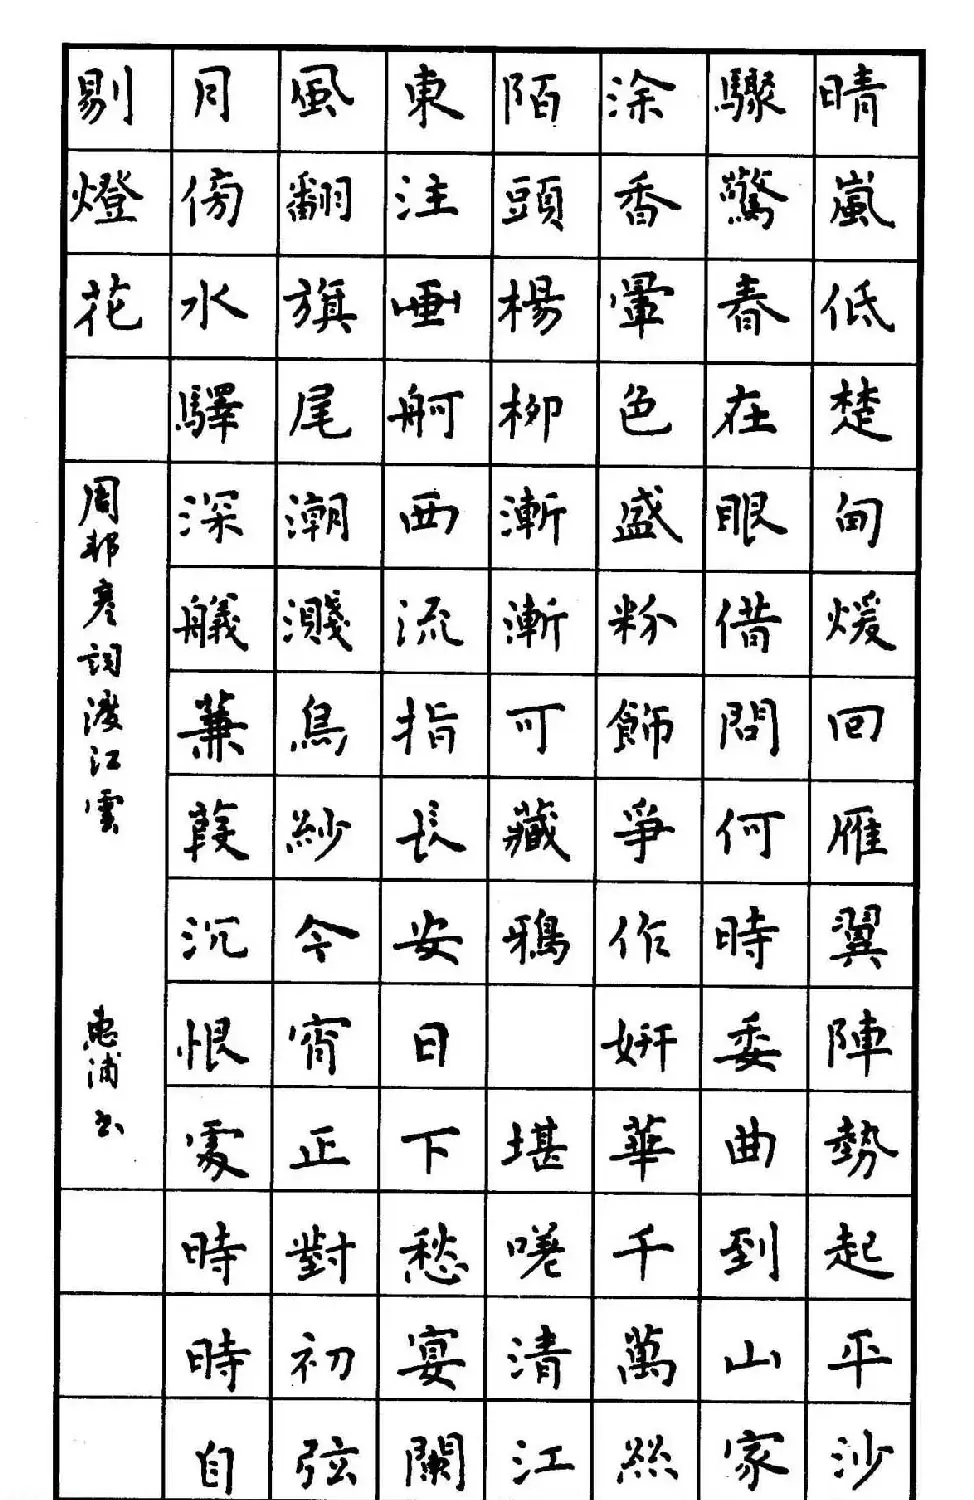 晴嵐低楚甸煖回雁翼陣勢起平沙
驟驚春在眼借問何時委曲到山家
涂香暈色盛粉飾爭作妍華千萬絲
陌頭楊柳漸漸可藏鴉 堪嗟清江
東注画舸西流指長安日下愁宴闌
風翻旗尾潮濺烏紗今宵正對初弦
月傍水驛深艤蒹葭沉恨處時時自
剔燈花
周邦彥詞渡江雲 惠浦书